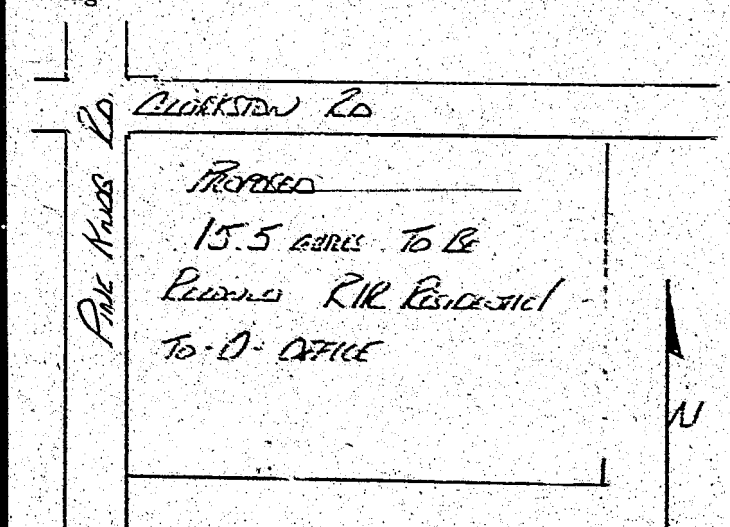 CLARKSTON RD
PINE KNOB RD.
PROPOSED
15.5 ACRES TO BE
REZONED R1R RESIDENTIAL
TO-O-OFFICE
N